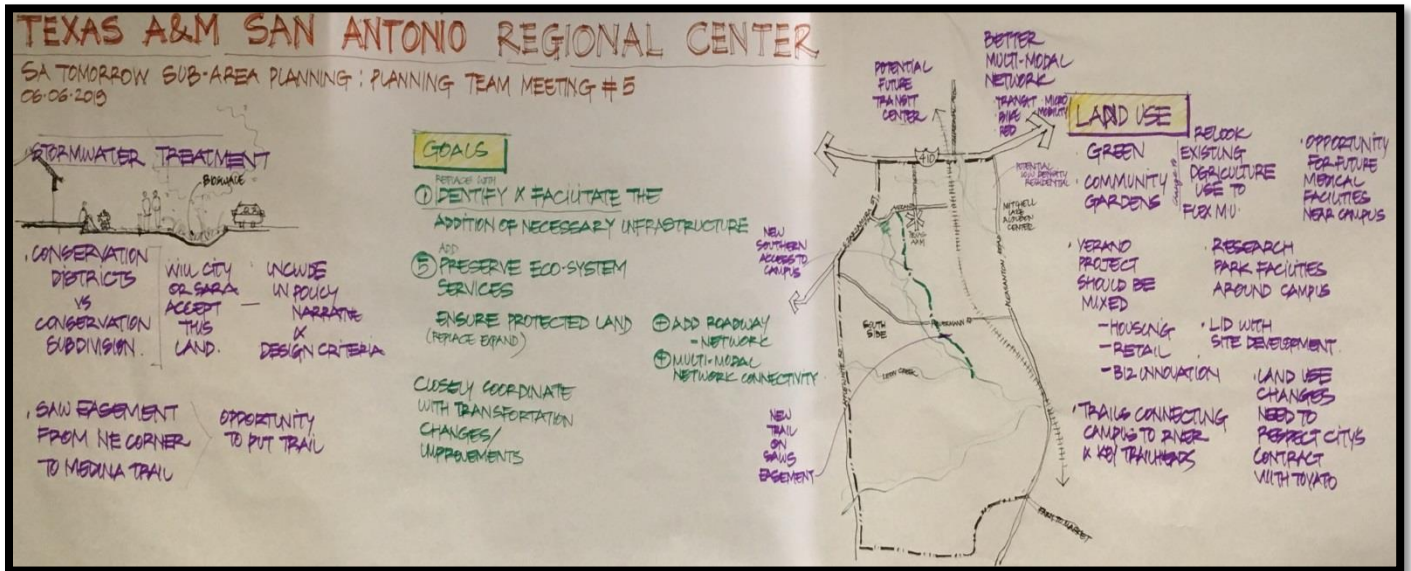 TEXAS A&M SAN ANTONIO REGIONAL CENTER
SA TOMORROW SUB-AREA PLANNING : PLANNING TEAM MEETING # 5
06·06·2019
STORMWATER TREATMENT
BIOSWALE
· CONSERVATION
DISTRICTS
VS
CONSERVATION
SUBDIVISION.
WILL CITY
OR SARA
ACCEPT
THIS
LAND.
— INCLUDE
IN POLICY
NARRATIVE
&
DESIGN CRITERIA
· SAW EASEMENT
FROM NE CORNER
TO MEDINA TRAIL
OPPORTUNITY
TO PUT TRAIL
GOALS
REPLACE WITH
① IDENTIFY & FACILITATE THE
ADDITION OF NECESSARY INFRASTRUCTURE
ADD
⑤ PRESERVE ECO-SYSTEM
SERVICES
ENSURE PROTECTED LAND
(REPLACE EXPAND)
CLOSELY COORDINATE
WITH TRANSPORTATION
CHANGES/
IMPROVEMENTS
⊕ ADD ROADWAY
- NETWORK
⊕ MULTI-MODAL
NETWORK CONNECTIVITY
POTENTIAL
FUTURE
TRANSIT
CENTER
BETTER
MULTI-MODAL
NETWORK
TRANSIT
· BIKE
· PED
MICRO
MOBILITY
410
POTENTIAL
LOW DENSITY
RESIDENTIAL
MITCHELL
LAKE
AUDUBON
CENTER
TEXAS
A&M
NEW
SOUTHERN
ACCESS TO
CAMPUS
SOUTH
SIDE
LEON CREEK
NEW
TRAIL
ON
SAWS
EASEMENT
LAND USE
· GREEN
· COMMUNITY
GARDENS
· RELOOK
EXISTING
AGRICULTURE
USE TO
FLEX MU.
· OPPORTUNITY
FOR FUTURE
MEDICAL
FACILITIES
NEAR CAMPUS
· VERANO
PROJECT
SHOULD BE
MIXED
- HOUSING
- RETAIL
- BIZ INNOVATION
· RESEARCH
PARK FACILITIES
AROUND CAMPUS
· LID WITH
SITE DEVELOPMENT.
· TRAILS CONNECTING
CAMPUS TO RIVER
& KEY TRAILHEADS
· LAND USE
CHANGES
NEED TO
RESPECT CITY'S
CONTRACT
WITH TOYATO